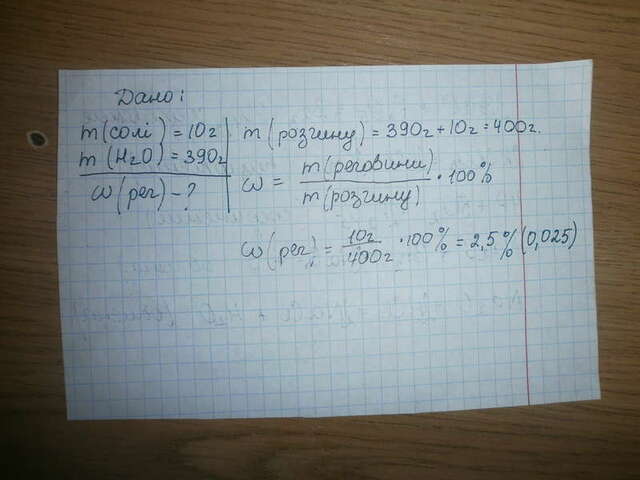 Дано:
m(солі) = 10г
m(H₂O) = 390г
ω(реч) - ?
m(розчину) = 390г + 10г = 400г.
ω = m(речовини) / m(розчину) · 100%
ω(реч) = 10г / 400г · 100% = 2,5% (0,025)